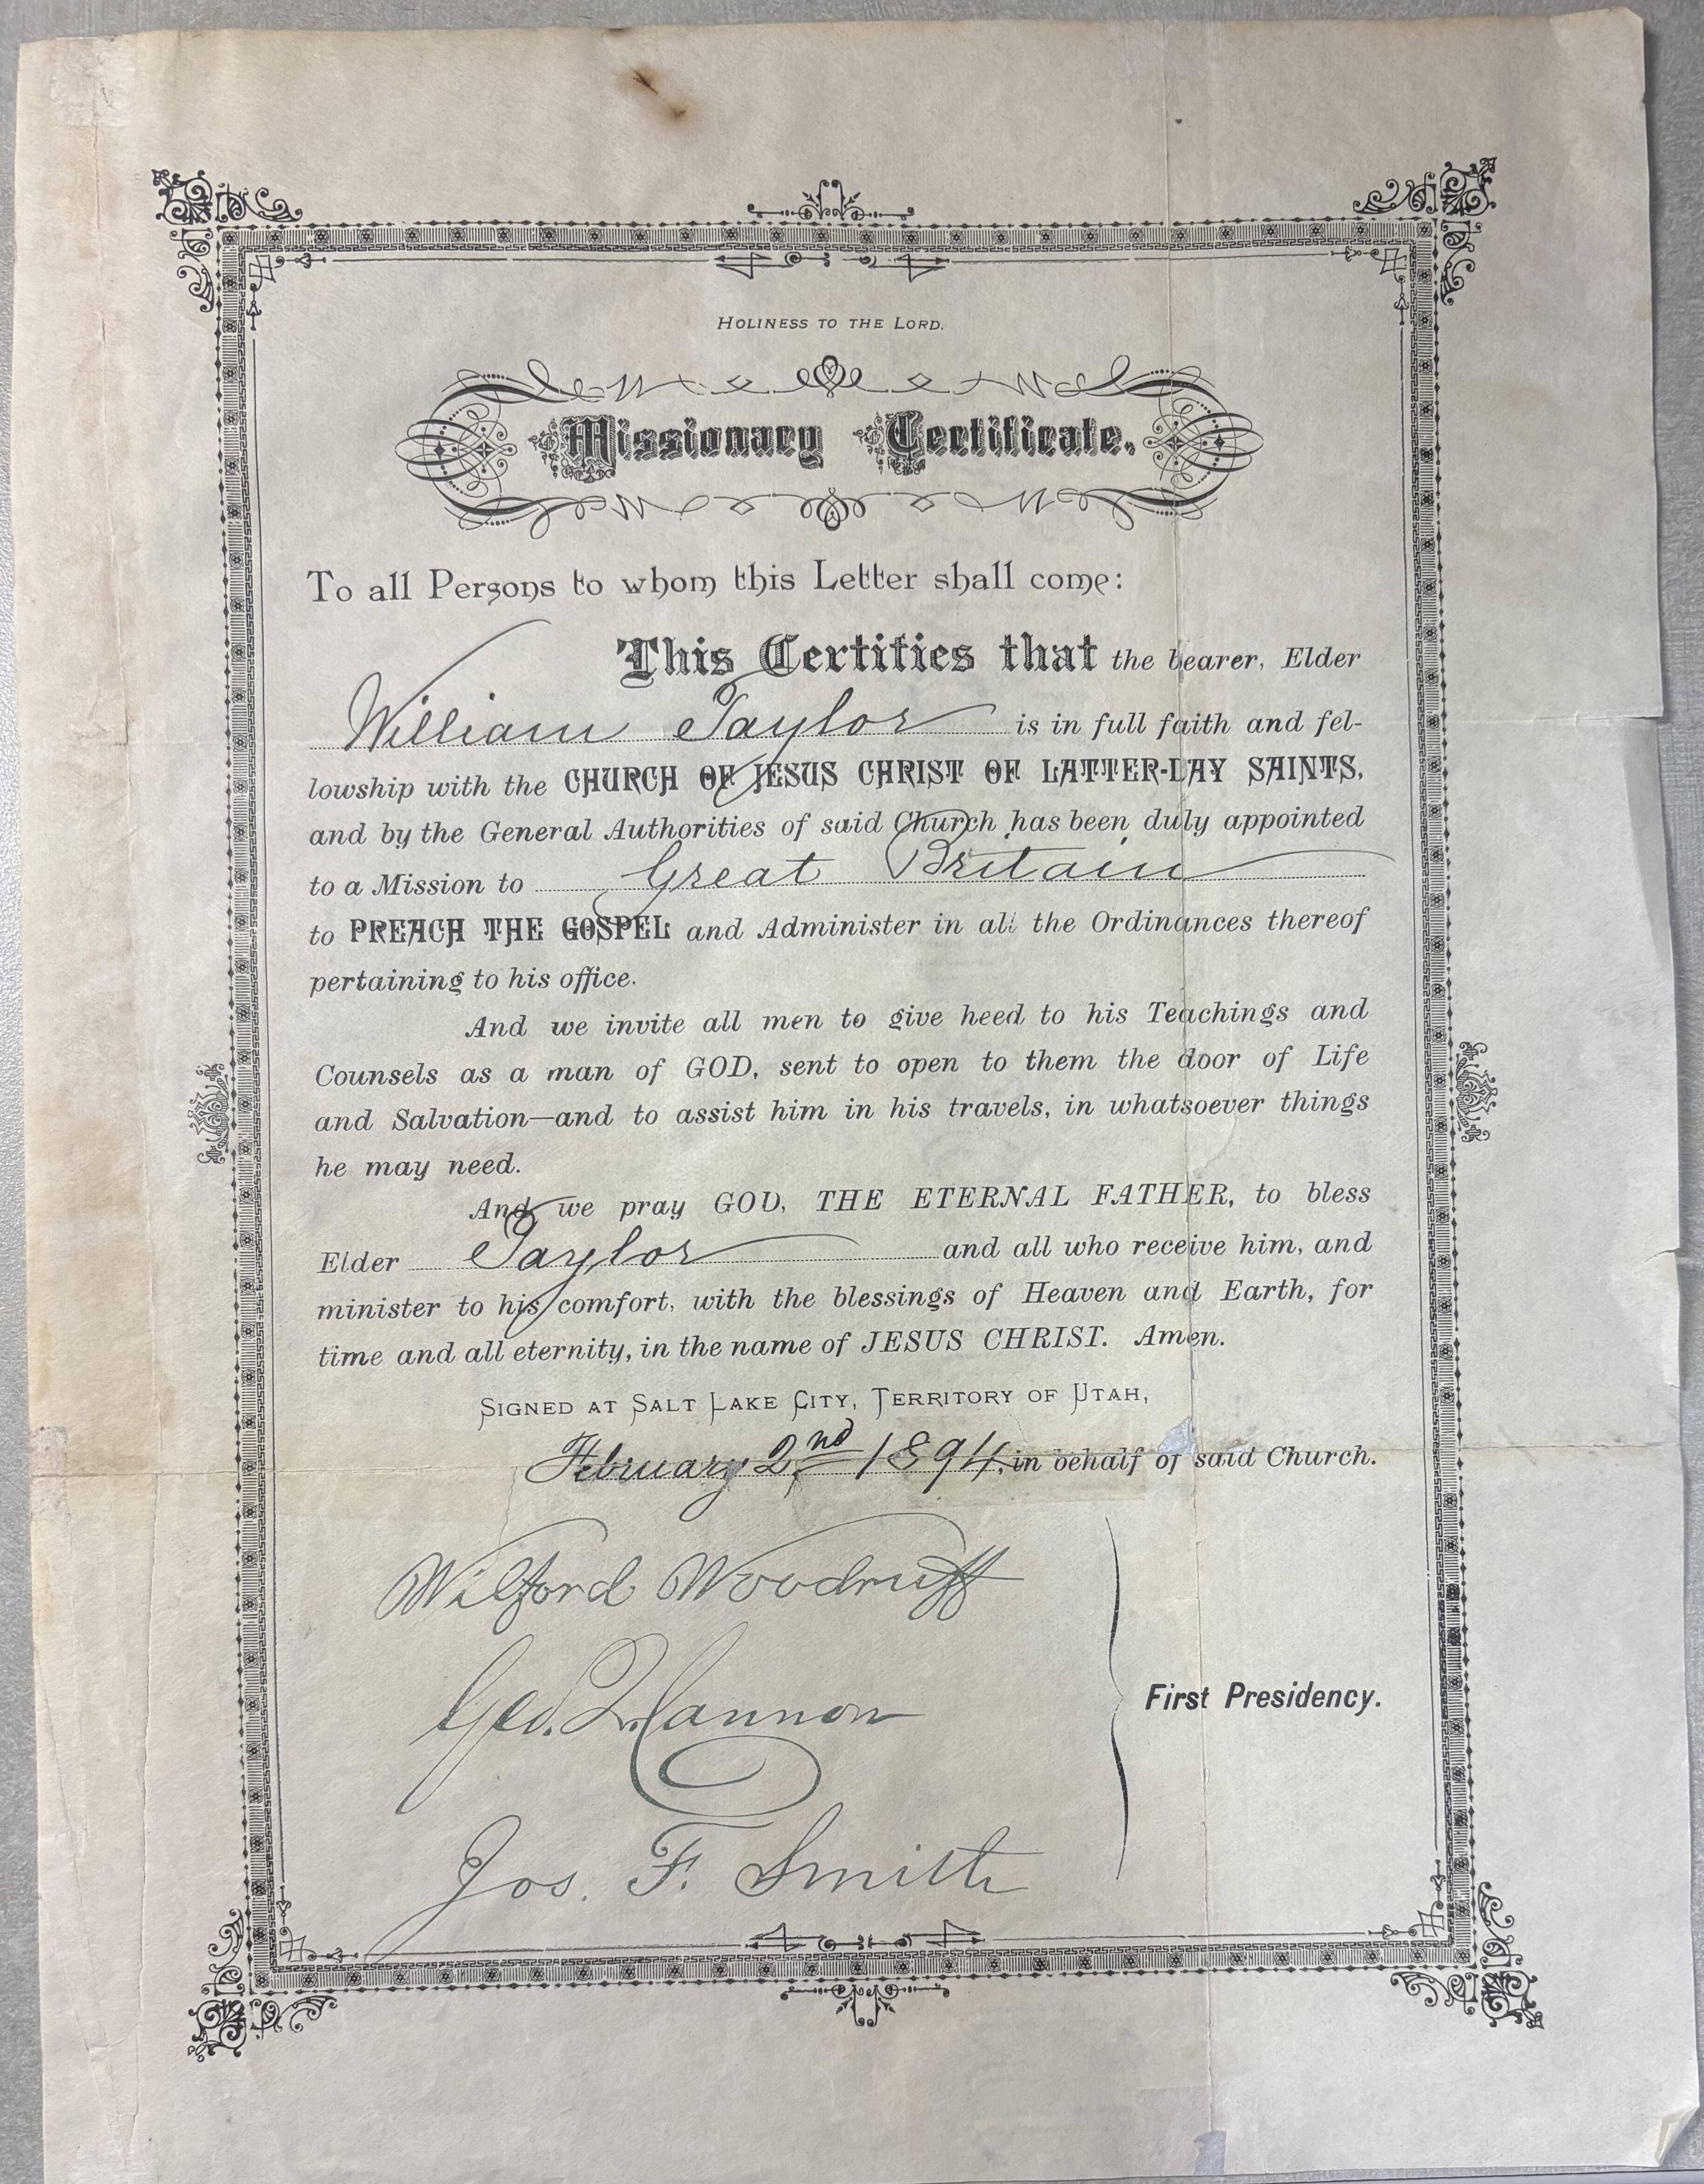 HOLINESS TO THE LORD.
Missionary Certificate.
To all Persons to whom this Letter shall come:
This Certifies that the bearer, Elder
William Taylor is in full faith and fel-
lowship with the CHURCH OF JESUS CHRIST OF LATTER-DAY SAINTS,
and by the General Authorities of said Church has been duly appointed
to a Mission to Great Britain
to PREACH THE GOSPEL and Administer in all the Ordinances thereof
pertaining to his office.
And we invite all men to give heed to his Teachings and
Counsels as a man of GOD, sent to open to them the door of Life
and Salvation—and to assist him in his travels, in whatsoever things
he may need.
And we pray GOD, THE ETERNAL FATHER, to bless
Elder Taylor and all who receive him, and
minister to his comfort, with the blessings of Heaven and Earth, for
time and all eternity, in the name of JESUS CHRIST. Amen.
SIGNED AT SALT LAKE CITY, TERRITORY OF UTAH,
February 2nd 1894, in behalf of said Church.
Wilford Woodruff
Geo. Q. Cannon
First Presidency.
Jos. F. Smith